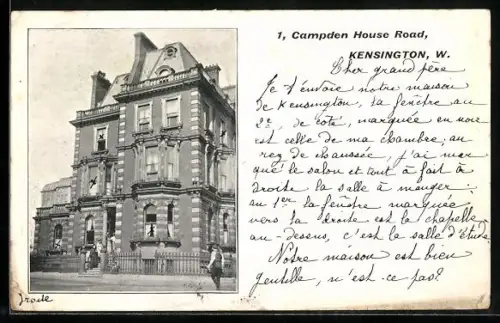 1, Campden House Road,
KENSINGTON, W.
Cher grand père
Je t'envoie notre maison
de Kensington, la fenêtre au
2e, de côté, marquée en noir
est celle de ma chambre, au
reg de chaussée, j'ai mar
qué le salon et tout à fait à
droite la salle à manger.
au 1er la fenêtre marquée
vers la droite est la chapelle
au-dessus, c'est la salle d'étude
Notre maison est bien
gentille, n'est-ce pas?
droite